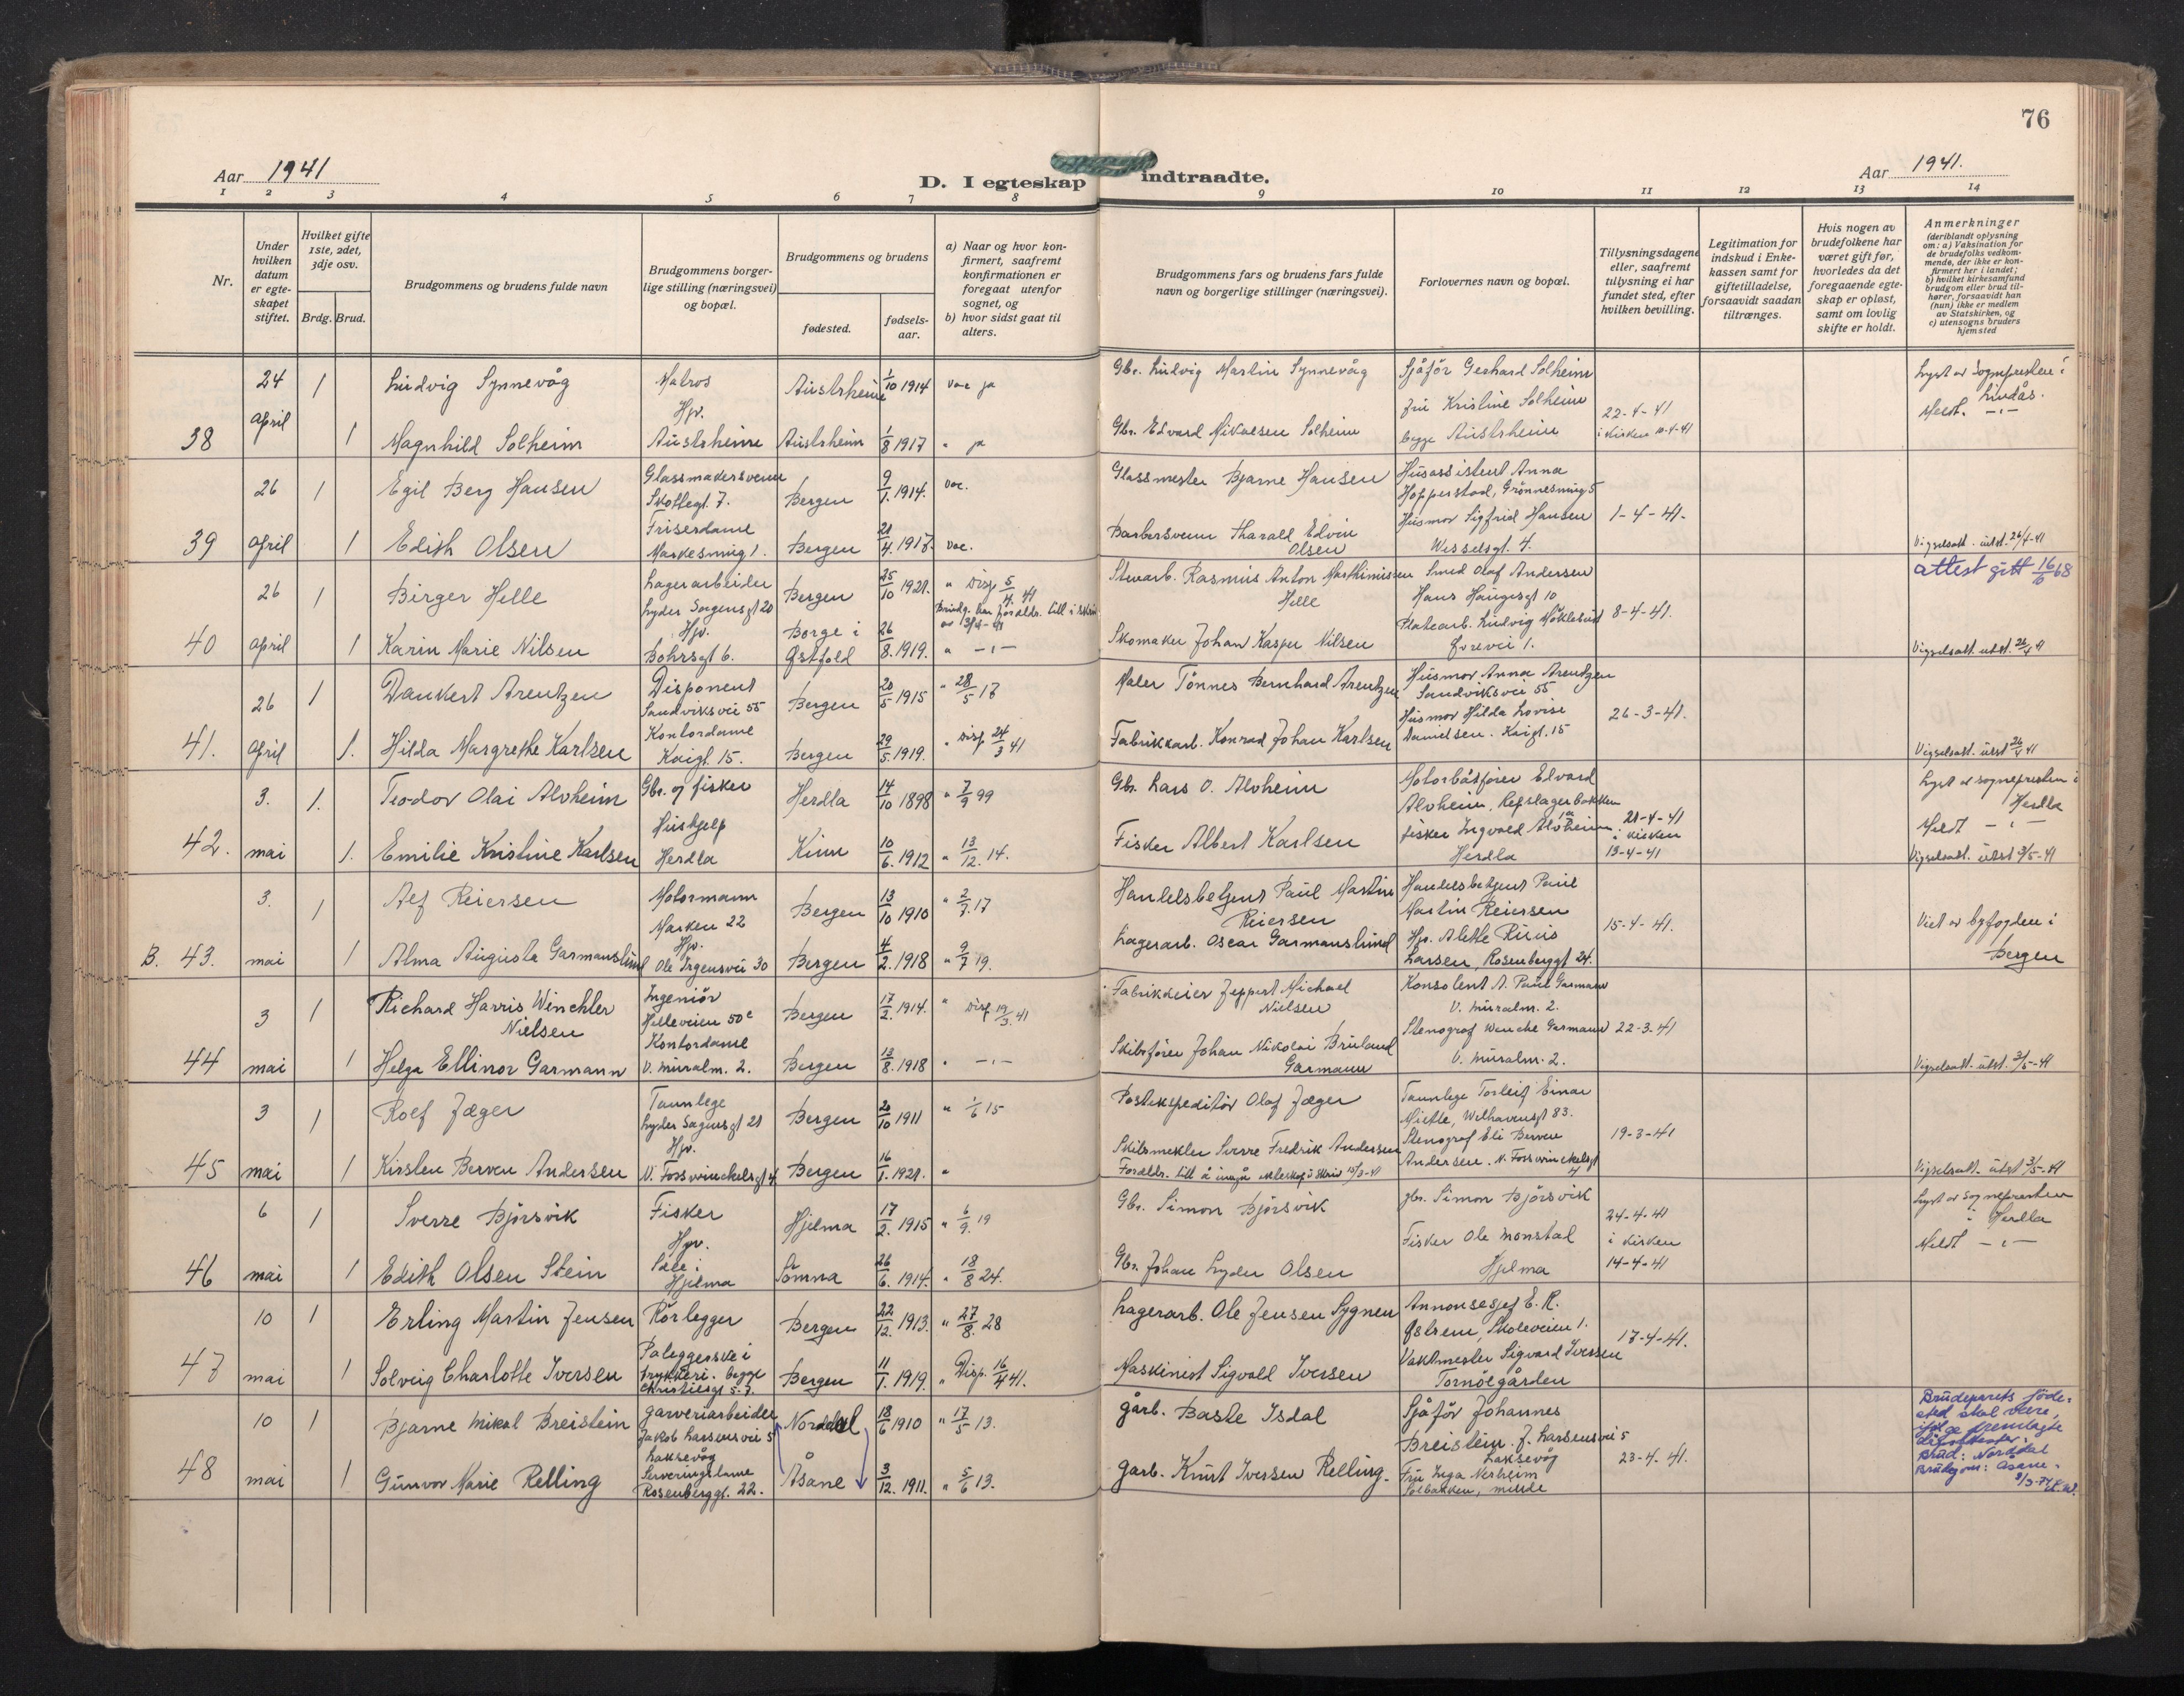 76
Aar 1941
D. I egteskap indtraadte.
Aar 1941.
1 2 3 4 5 6 7 8 9 10 11 12 13 14
Nr.
Under hvilken datum er egteskapet stiftet.
Hvilket gifte 1ste, 2det, 3dje osv.
Brdg. Brud.
Brudgommens og brudens fulde navn
Brudgommens borgerlige stilling (næringsvei) og bopæl.
Brudgommens og brudens
fødested.
fødselsaar.
a) Naar og hvor konfirmert, saafremt konfirmationen er foregaat utenfor sognet, og
b) hvor sidst gaat til alters.
Brudgommens fars og brudens fars fulde navn og borgerlige stillinger (næringsvei).
Forlovernes navn og bopæl.
Tillysningsdagene eller, saafremt tilysning ei har fundet sted, efter hvilken bevilling.
Legitimation for indskud i Enkekassen samt for giftetilladelse, forsaavidt saadan tiltrænges.
Hvis nogen av brudefolkene har været gift før, hvorledes da det foregaaende egteskap er opløst, samt om lovlig skifte er holdt.
Anmerkninger
(deriblandt oplysning om: a) Vaksination for de brudefolks vedkommende, der ikke er konfirmert her i landet; b) hvilket kirkesamfund brudgom eller brud tilhører, forsaavidt han (hun) ikke er medlem av Statskirken, og c) utensogns bruders hjemsted
24 1 Ludvig Synnevåg Matros Austrheim 1/10 1914 vac ja Gbr. Ludvig Martin Synnevåg Sjåfør Gerhard Solheim Lyst av Sognepresten i Lindås.
38 April 1 Magnhild Solheim Hjv. Austrheim Austrheim 1/8 1917 " ja Gbr. Edvard Mikalsen Solheim Fru Kristine Solheim begge Austrheim 22-4-41 i kirken 10-4-41
26 1 Egil Berg Hansen Glassmakersvenn Skottegt. 7. Bergen 9/1. 1914. vac. Glassmester Bjarne Hansen Husassistent Anna Hopperstad, Grønnesmug 5
39 April 1 Edith Olsen Friserdame Markesmug 1. Bergen 21/4. 1917. vac. Barbersvenn Harald Edvin Olsen Husmor Sigfrid Hansen Wesselsgt. 4. 1-4-41. Vigselsatt. utst. 26/4-41
26 1 Birger Helle Lagerarbeider Lyder Sagensgt 20 Bergen 25/10 1921. " Disp 5/4. 41 Stuearb. Rasmus Anton Mathinissen Helle Smed Olaf Andersen Hans Haugesgt 10 attest gitt 16/10 68
40 April 1 Karin Marie Nilsen Hjv. Bohrsgt 6. Borge i Østfold 26/8. 1919. " -"- Skomaker Johan Kasper Nilsen Platearb. Ludvig Møklebust Ørevei 1. 8-4-41. Vigselsatt. utst. 26/4 41
26 1 Dankert Arentzen Disponent Sandviksvei 55 Bergen 20/5 1915 " 28/5 17 Maler Tønnes Bernhard Arentzen Husmor Anna Arentzen Sandviksvei 55
41. April 1. Hilda Margrethe Karlsen Kontordame Kaigt. 15. Bergen 29/5. 1919. " Disp 24/3 41 Fabrikkarb. Konrad Johan Karlsen Husmor Hilda Lovise Danielsen. Kaigt. 15 26-3-41. Vigselsatt. utst 26/4 41
3. 1. Teodor Olai Alvheim Gbr. og fisker Herdla 14/10 1898 " 7/9 99 Gbr. Lars O. Alvheim Motorbåtfører Edvard Alvheim, Repslagerbakken Lyst av sognepresten i Herdla
42. mai 1. Emilie Kristine Karlsen Hushjelp Herdla Kinn 10/6. 1912 " 13/12. 14. Fisker Albert Karlsen fisker Ingvald Alvheim Herdla 21-4-41 i kirken 13-4-41 Meldt -"- Vigselsatt. utst 3/5-41
3. 1 Alf Reiersen Motormann Marken 22 Bergen 13/10 1910 " 2/7. 17 Handelsbetjent Paul Martin Reiersen Handelsbetjent Paul Martin Reiersen Viet av byfogden i Bergen
B. 43. mai 1 Alma Auguste Garmanslund Hjv. Ole Irgensvei 30 Bergen 4/2. 1918 " 9/7 19. Lagerarb. Oscar Garmanslund Hjv. Alette Larsen, Rosenberggt 24. 15-4-41.
3 1 Richard Harris Winchler Nielsen Ingeniør Helleveien 50c Bergen 17/2. 1914. " Disp 19/3. 41 Fabrikkeier Jeppert Michael Nielsen Konsulent A. Paul Garmann V. Muralm. 2.
44 mai 1 Helga Ellinor Garmann Kontordame V. Muralm. 2. Bergen 13/8. 1918 " -"- Skibsfører Johan Nikolai Bruland Garmann Stenograf Wenche Garmann V. Muralm. 2. 22-3-41 Vigselsatt. utst. 3/5-41
3 1 Rolf Jæger Tannlege Lyder Sagensgt 21 Bergen 20/10 1911 " 1/6 15 Postekspeditør Olaf Jæger Tannlege Torleif Einar Mietle, Welhavensgt 83.
45 mai 1 Kirsten Berven Andersen Hjv. N. Fosswinckelsgt 4 Bergen 16/1. 1921. " Skibsmekler Sverre Fredrik Andersen Foreldr. till å inngå ekteskap i skriv 15/3-41 Stenograf Eli Berven Andersen. N. Fosswinckelsgt 4 19-3-41 Vigselsatt. utst 3/5-41
6 1 Sverre Bjørsvik Fisker Hjelma 17/2. 1915 " 6/9. 19 Gbr. Simon Bjørsvik gbr. Simon Bjørsvik Lyst av Sognepresten i Herdla
46 mai 1 Edith Olsen Stein Hjv. Sæle i Hjelma Sømna 26/6. 1914. " 18/8 24. Gbr. Johan Lyder Olsen Fisker Ole Monstal Hjelma 24-4-41 i kirken 14-4-41 Meldt -"-
10 1 Erling Martin Jensen Rørlegger Bergen 22/12. 1913. " 27/8. 28 Lagerarb. Ole Jensen Sygnen Annonsesjef E. R. Østrem, Skoleveien 1.
47 mai 1 Solveig Charlotte Iversen Påleggerske i trykkeri. begge Christiesgt 5-7. Bergen 11/1. 1919. " Disp. 16/4 41. Maskinist Sigvald Iversen Vaktmester Sigvard Iversen Tornøegården 17-4-41.
10 1 Bjarne Mikal Breistein Garveriarbeider Jakob Larsensvei 5 Laksevåg Norddal 18/6 1910 " 17/5 13. gårb. Baste Isdal Sjåfør Johannes Breistein J. Larsensvei 5 Laksevåg
48 mai 1 Gunvor Marie Relling Serveringsdame Rosenberggt. 22. Åsane 3/12. 1911. " 5/6 13. garb. Knut Iversen Relling. Fru Inga Nesheim Solbakken, Milde 23-4-41.
Brudeparets fødested skal være, ifølge fremlagte dåpsattester: Brud: Norddal Brudgom: Åsane.